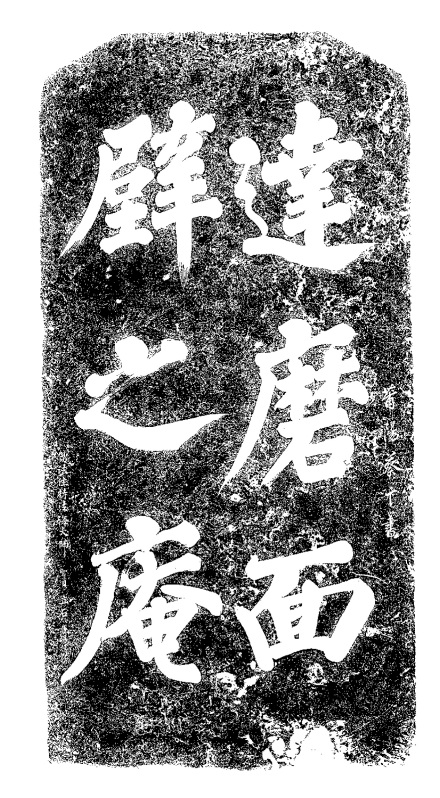 達磨面
壁之庵